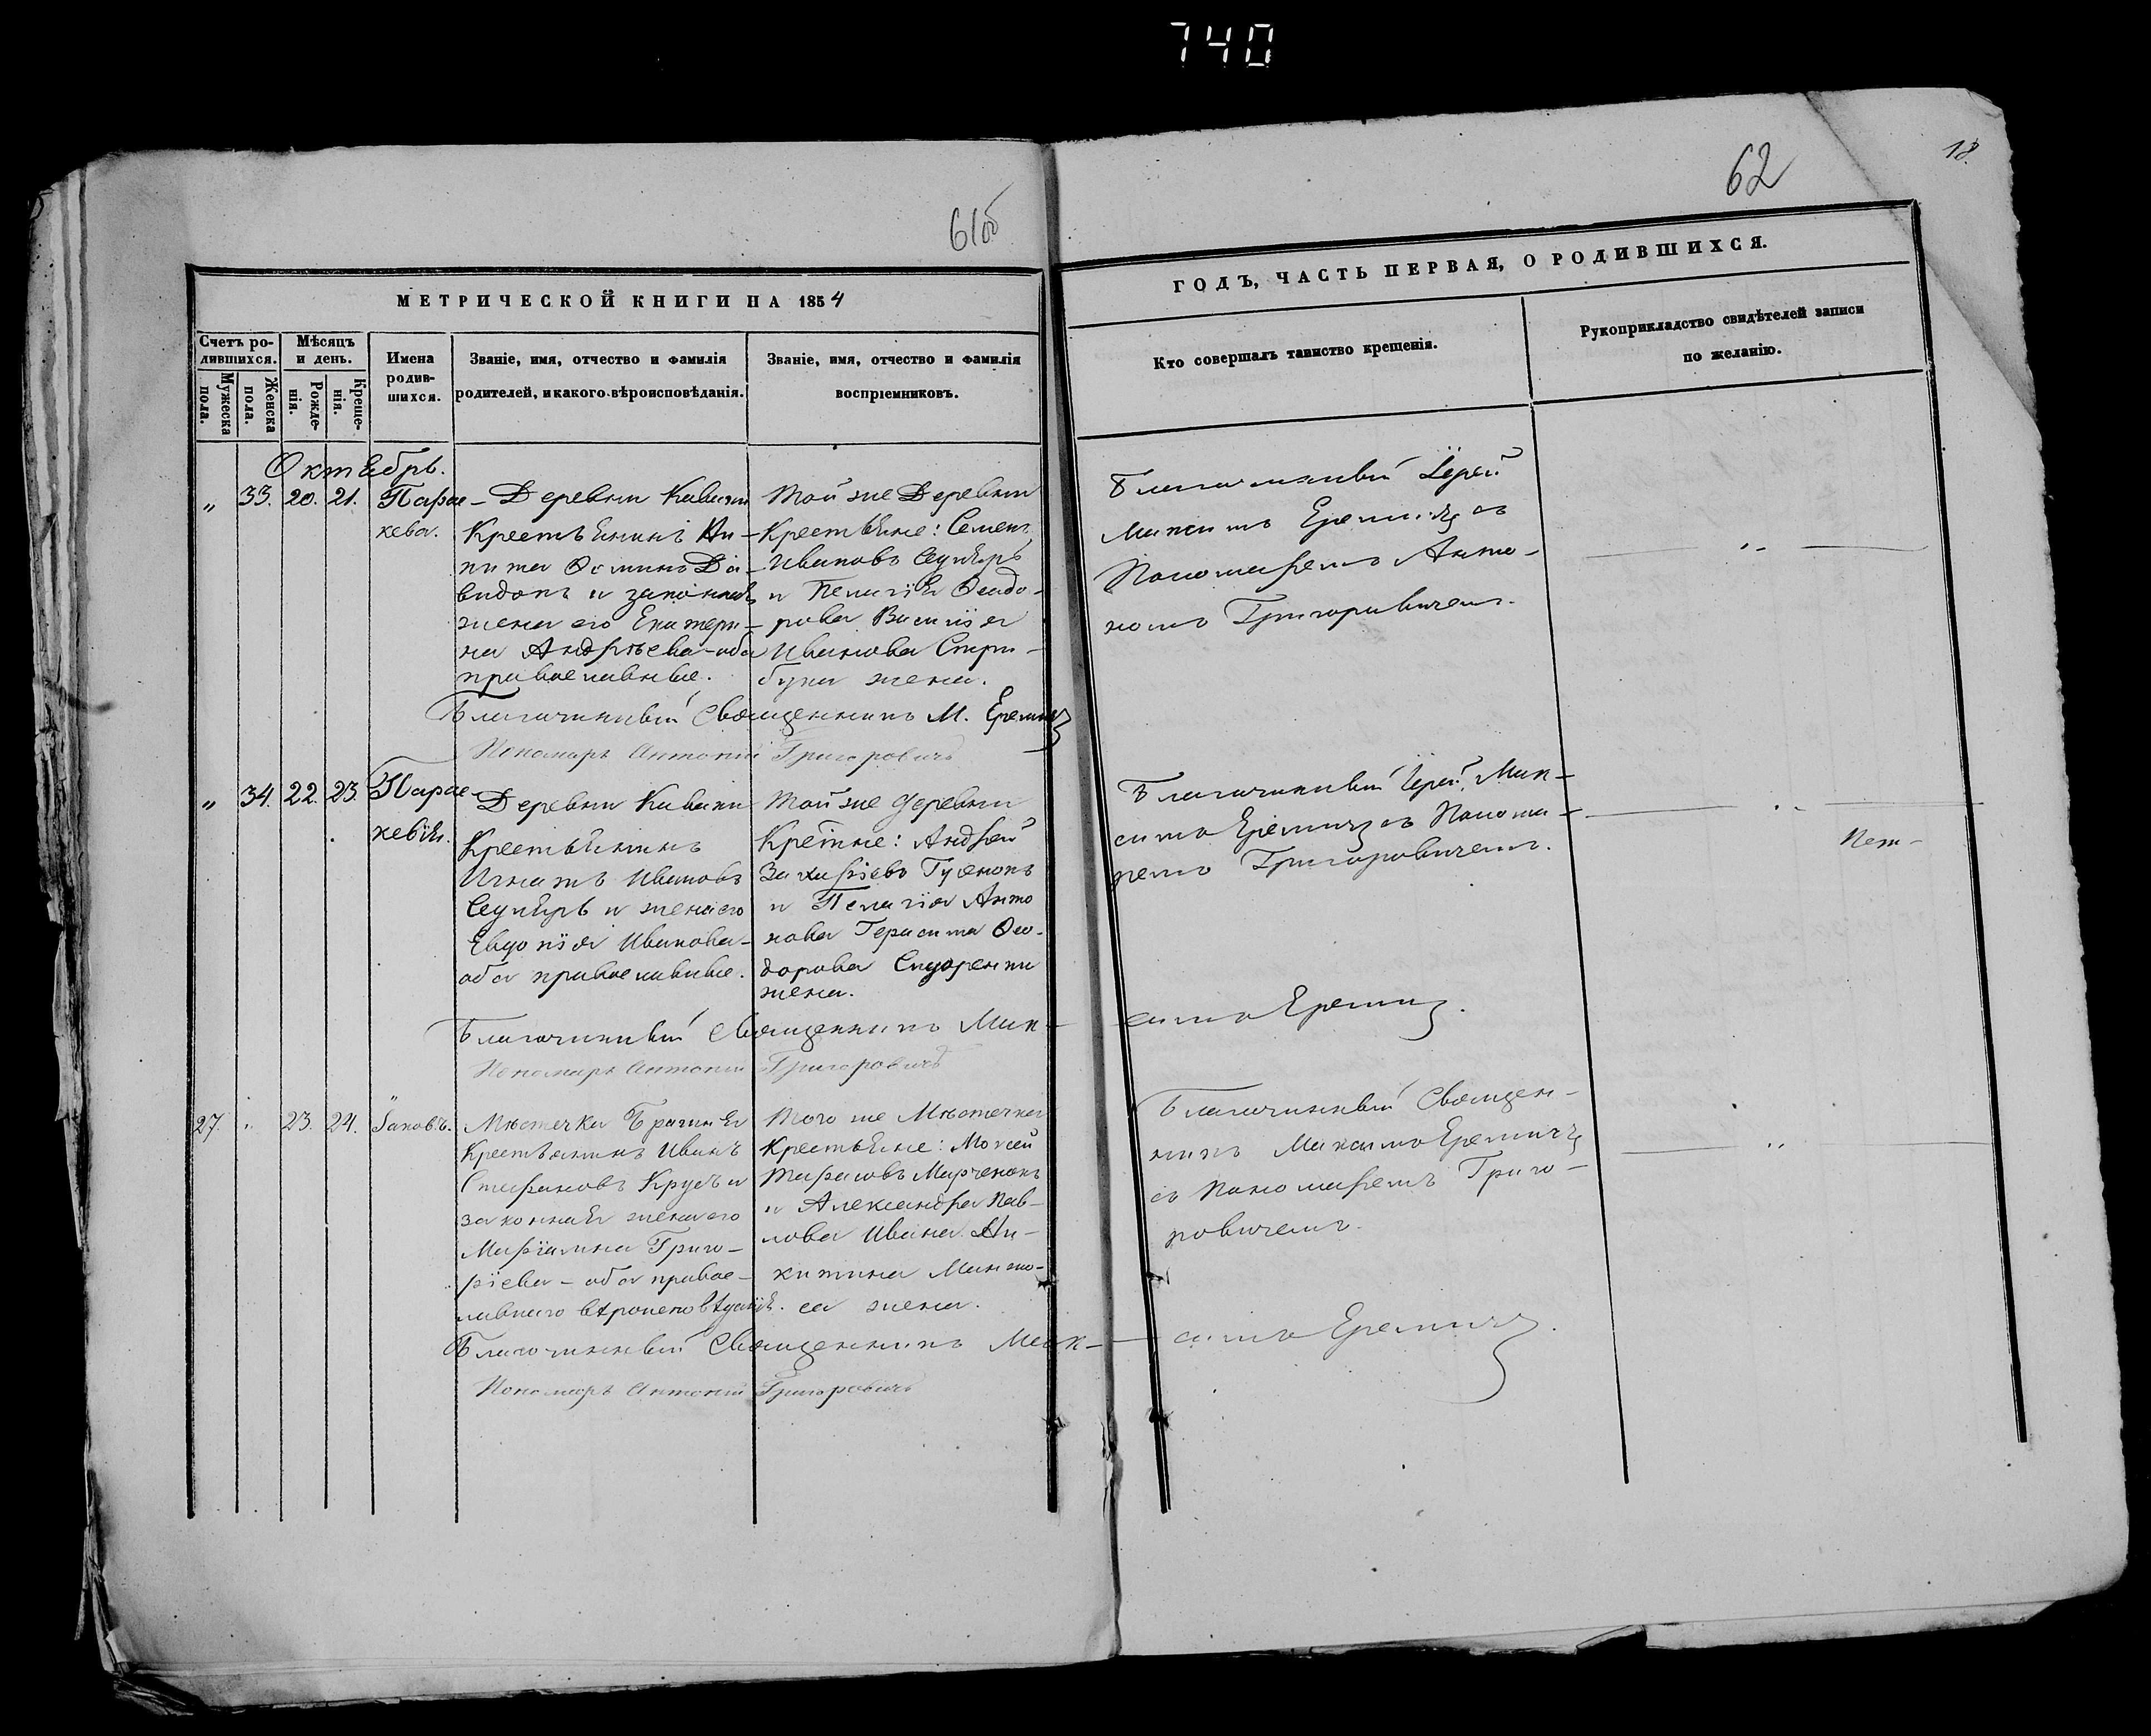 740
61об
62
18.
МЕТРИЧЕСКОЙ КНИГИ НА 1854
ГОДЪ, ЧАСТЬ ПЕРВАЯ, О РОДИВШИХСЯ.
Счетъ ро-
дившихся.
Мужеска
пола.
Женска
пола.
Мѣсяцъ
и день.
Рожде-
нія.
Креще-
нія.
Имена
родив-
шихся.
Званіе, имя, отчество и фамилія
родителей, и какого вѣроисповѣданія.
Званіе, имя, отчество и фамилія
воспріемниковъ.
Кто совершалъ таинство крещенія.
Рукоприкладство свидѣтелей записи
по желанію.
Октябрь.
„ 33. 20. 21. Парас-
кева.
Деревни
Крестьянинъ Ни-
кита Ѳоминъ Да-
видокъ и законная
жена его Екатери-
на Андрѣева - оба
православные.
Той же Деревни
Крестьяне: Семенъ
Ивановъ
и Пелагія Ѳеодо-
рова Василія
Иванова
жена.
Благочинный Іерей
Максимъ Еремичъ съ
Пономаремъ Анто-
номъ Григоровичемъ.
Благочинный Священникъ М. Еремичъ
Пономарь Антоній Григоровичъ
„ 34. 22. 23. Парас-
кевія.
Деревни
Крестьянинъ
Игнатъ Ивановъ
и жена его
Евдокія Иванова -
оба православные.
Той же деревни
Крестьяне: Андрей
Захарьевъ Гусенокъ
и Пелагія Анто
нова Герасима Ѳео-
дорова Сидоренки
жена.
Благочинный Іерей Мак-
симъ Еремичъ съ Понома-
ремъ Григоровичемъ.
Благочинный Священникъ Мак-
симъ Еремичъ.
Пономарь Антоній Григоровичъ
27. „ 23. 24. Іаковъ.
Мѣстечка Брагиня
Крестьянинъ Иванъ
Стефановъ и
законная жена его
Маріамна Григо-
рiева - оба правос-
лавнаго вѣроисповѣданія.
Того же Мѣстечка
Крестьяне: Моисей
Тарасовъ Марченокъ
и Александра Пав-
лова Ивана Ни-
китина
жена.
Благочинный Священ-
никъ Максимъ Еремичъ
съ Пономаремъ Григо-
ровичемъ.
Благочинный Священникъ Мак-
симъ Еремичъ.
Пономарь Антоній Григоровичъ